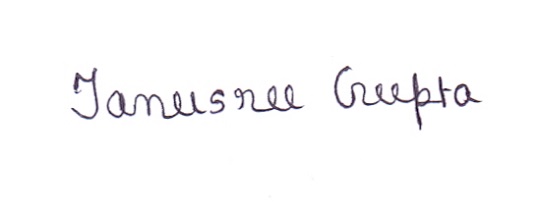 Tanusree Gupta